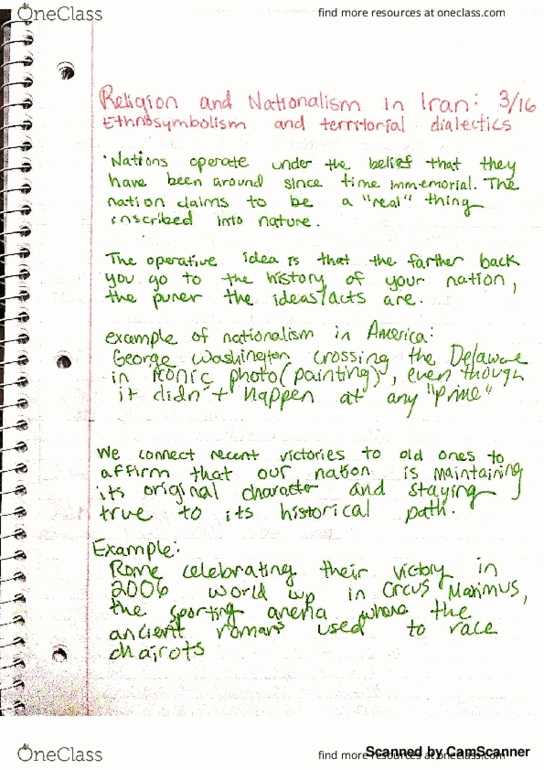 OneClass
find more resources at oneclass.com
Religion and Nationalism in Iran: 3/16
Ethnosymbolism and territorial dialectics
Nations operate under the belief that they
have been around since time immemorial. The
nation claims to be a "real" thing
inscribed into nature.
The operative idea is that the farther back
you go to the history of your nation,
the purer the ideas/acts are.
example of nationalism in America:
George Washington crossing the Delaware
in iconic photo (painting), even though
it didn't happen at any "prime"
We connect recent victories to old ones to
affirm that our nation is maintaining
its original character and staying
true to its historical path.
Example:
Rome celebrating their victory in
2006 world cup in Circus Maximus,
the sporting arena where the
ancient romans used to race
chairots
OneClass
find more resources at oneclass.com
Scanned by CamScanner